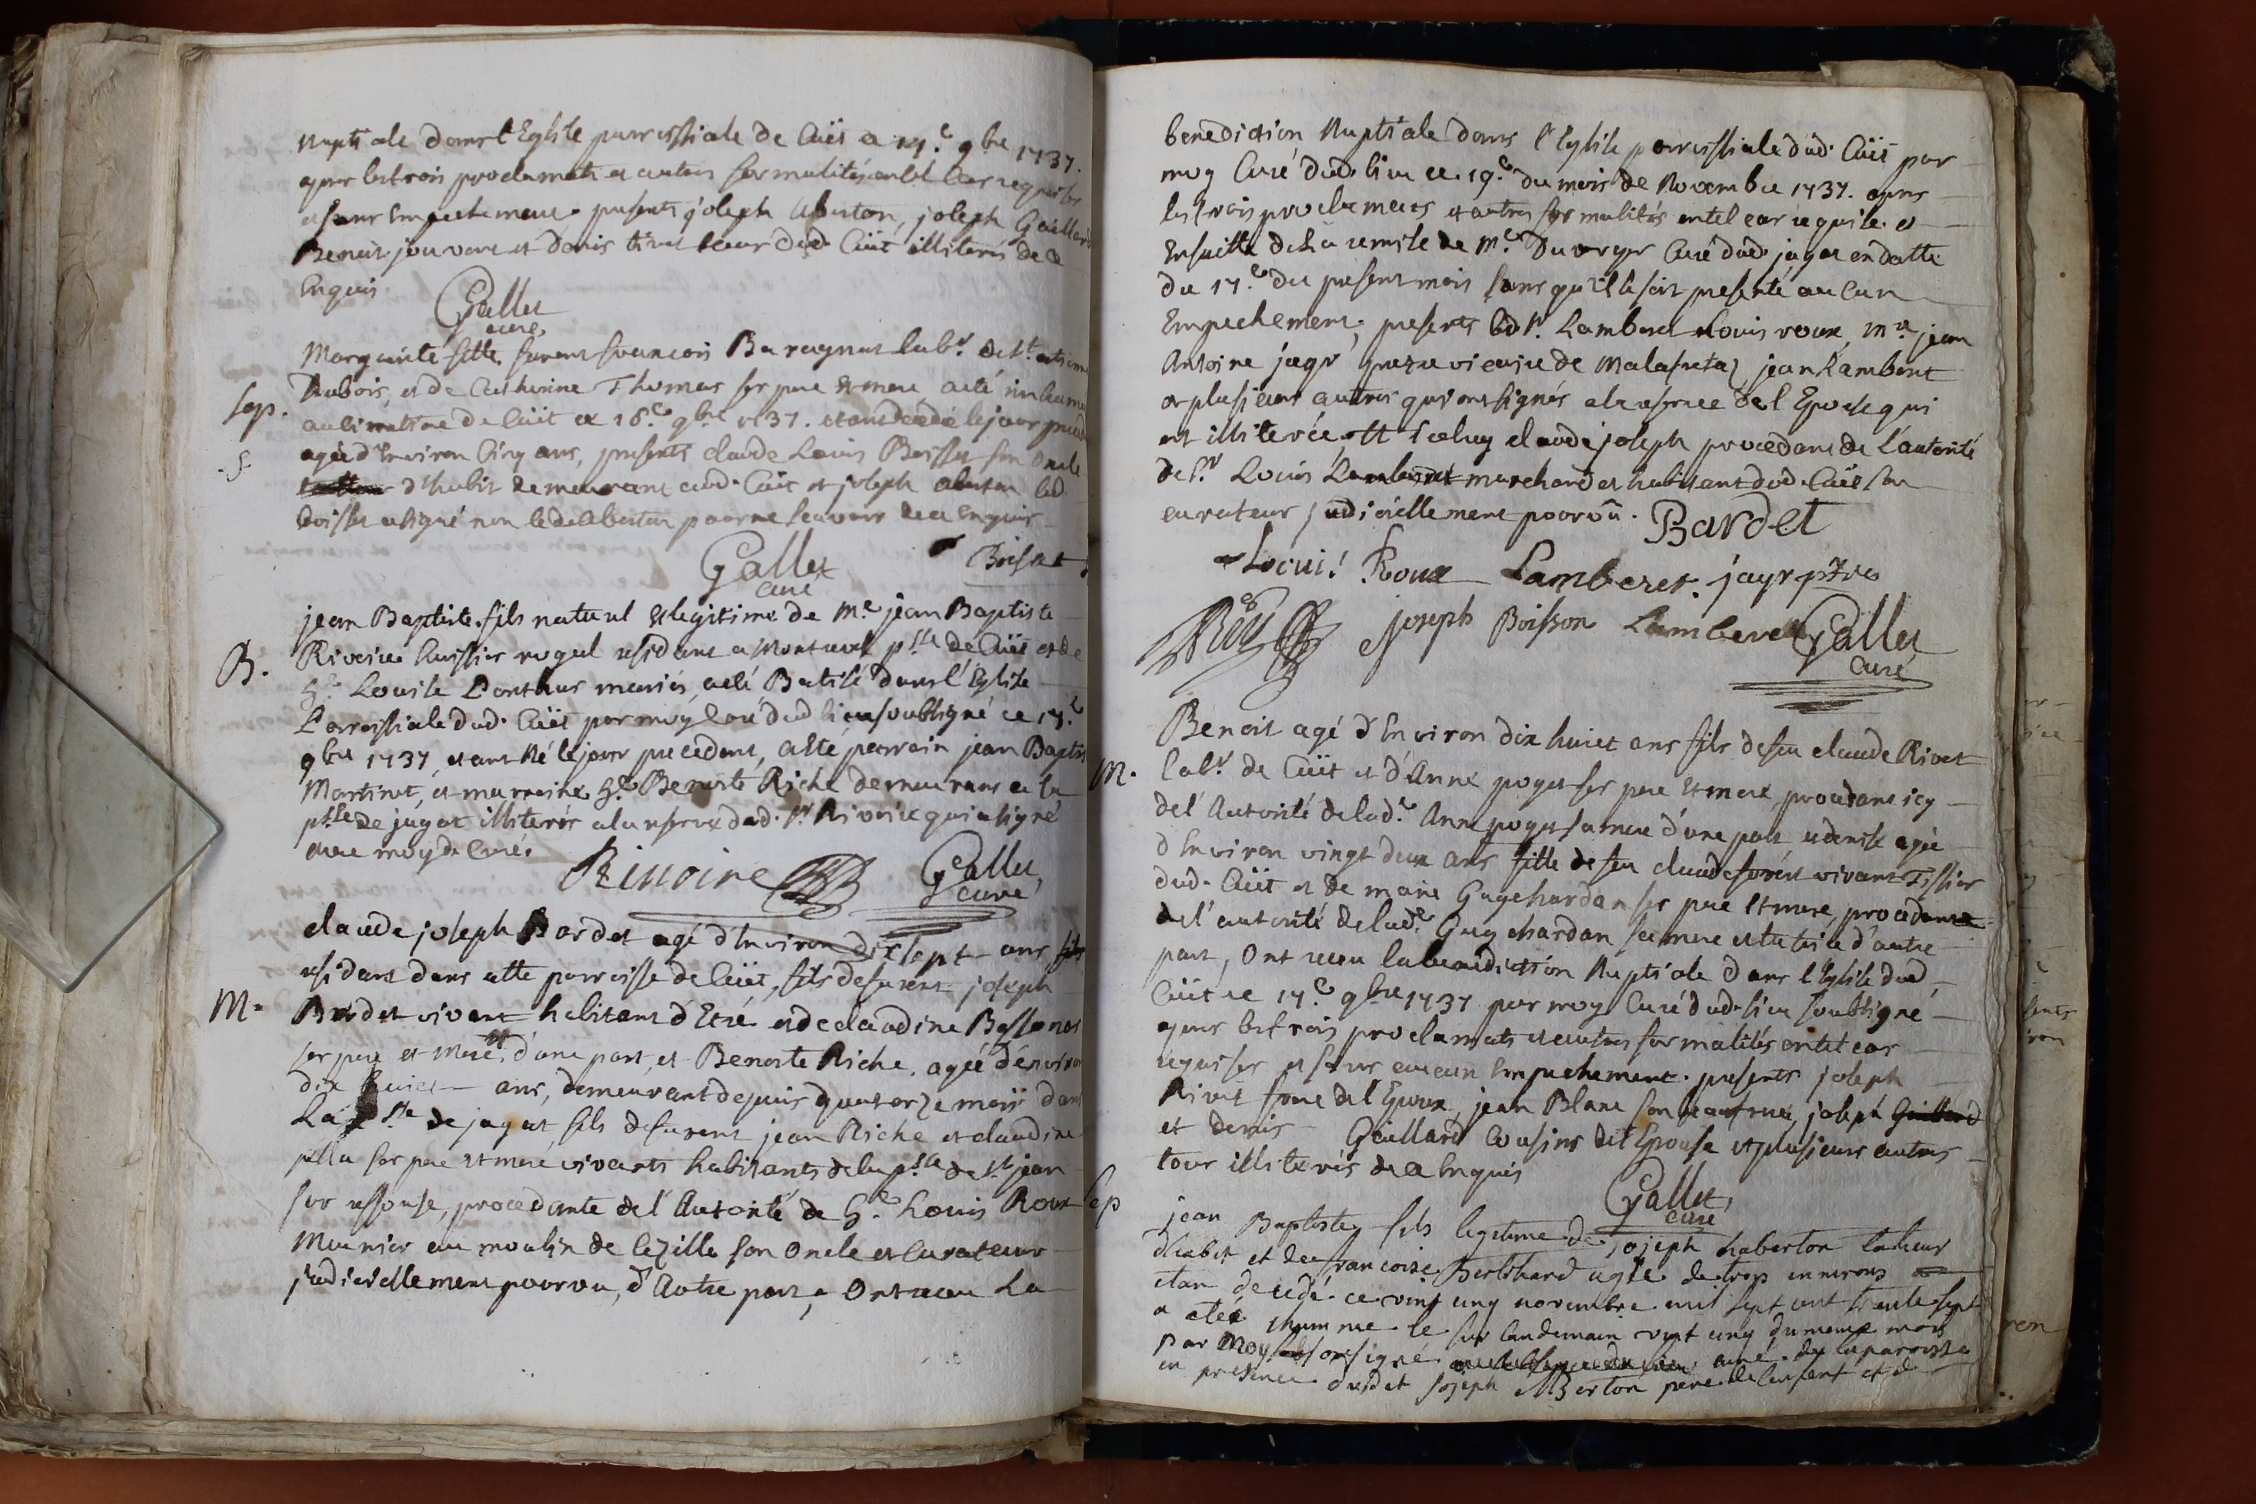 Nuptiale dans l'Eglise parrossiale de Cuët ce 14.e 9bre 1737.
apres les trois proclamats et autres formalités en tel cas requises
et sans Empechement. presents joseph Aberton, joseph Gaillard
Benoit jouvent et Denis tous dud. Cuët illiterés de ce
Enquis
Gallet
curé
Marguerite fille furent francois Baragnat labr. de St. estienne
Dubois, et de Catherine Thomas ses pere et mere a eté inhumée
Sep. au cimetiere de Cuët ce 18.e 9bre 1737. etant decedée le jour precedt
agée d'Environ Cinq ans, presents claude Louis Boisset son oncle
d'habit demeurant aud. Cuët et joseph Aberton led.
Boisset a signé non led. Aberton pour ne scavoir de ce enquis
Gallet
curé
Boisset
jean Baptiste fils naturel et legitime de Me. jean Baptiste
B. Rivoire huissier royal residant a Montrevel psse de Cuët et de
Louise Ponthus mariés, a eté Batisé dans l'Eglise
Parrossiale dud. Cuët par moy Curé dud lieu soubsigné ce 17.e
9bre 1737, etant Né le jour precedent, a eté parrain jean Baptiste
Martinet, et marraine Benoite Riche demeurans en la
psse de jayat illiterés a la reserve dud. Sr. Rivoire qui a signé
avec moyd. Curé.
Rivoire Gallet
curé
claude joseph Bardet agé d'Environ dix sept ans
residant dans cette parroisse de Cuët, fils defurent joseph
M. Bardet vivant habitant d'Etré et de claudine
ses pere et mere, d'une part, et Benoite Riche, agée d'Environ
dix huict ans, demeurant depuis quatorze mois dans
La psse de jayat, fils defurent jean Riche et claudine
ses pere et mere vivants habitants de la psse de St. jean
sur ressouse, procedante de l'Autorité de Louis Roux
Meunier au moulin de Cezille son Oncle et Curateur
judiciellement pourvu, d'Autre part, Ont receu La
benediction Nuptiale dans l'Eglise parrossiale dud. Cuët par
moy Curé dud. lieu ce 19.e du mois de Novembre 1737. apres
les trois proclamats et autres formalités en tel cas requises. et
Ensuitte de la remise de Me. Duverger Curé dud. jayat en datte
du 17.e du present mois sans qu'il se soit presenté aucun
Empechement, presents led. Sr. Lamberet Louis roux, Me. jean
Antoine jayr vicaire de Malafretaz, jean Lamberet
et plusieurs autres qui ont signés a la reserve de l'Epouse qui
est illiterée, et iceluy claude joseph procedant de l'autorité
de Sr. Louis Lamberet marchand et habitant dud. Cuët son
curateur judiciellement pourvû. Bardet
Loui. Roux Lamberet. jayr ptre
joseph Boisson Lamberet Gallet
curé
Benoit agé d'Environ dix huict ans fils defeu claude Rivet
M. labr. de Cuët et d'Anne poget ses pere et mere, procedant icy
de l'Autorité de lade. Anne poget sa mere d'une part et denise agée
d'Environ vingt deux ans fille de feu claude vivant Tissier
dud. Cuët et de marie Guychardan ses pere et mere, procedante
de l'autorité de lade. Guychardan sa mere et tutrice d'autre
part, Ont receu la benediction Nuptiale dans l'Eglise dud
Cuët ce 17.e 9bre 1737 par moy Curé dud. lieu soubsigné
apres les trois proclamats et autres formalités en tel cas
requises et sans aucun Empechement. presents joseph
Rivet frere de l'Epoux, jean Blanc son beaufrere, joseph
et denis Gaillard Cousins de l'Epouse et plusieurs autres
tous illiterés de ce Enquis
Gallet
curé
Sep jean Baptistes fils legitime de jojeph haberton laheur
d'habet et de francoise Berthard agée de trois environs
etan decedé ce vint cinq novembre mil sept cent trente sept
a eteé inhummé le sur landemain vint cinq du meme mois
par Moy sousigné curé de la paroisse
en presence dudet jojeph ABerton pere de lenfent et de